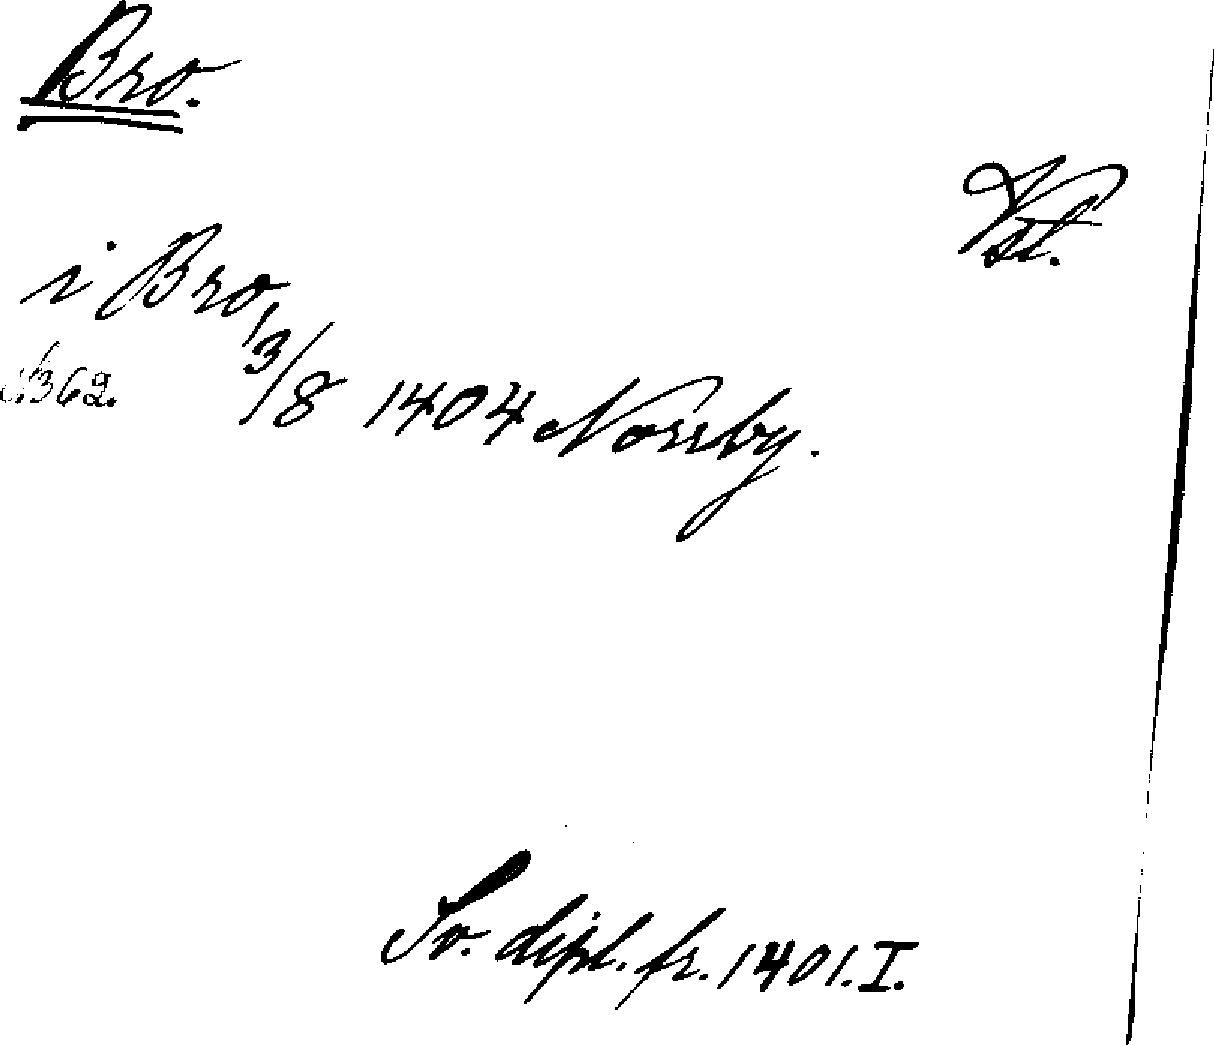 Bro.
Vst.
i Bro
s. 362. 13/8 1404 Norrby.
Sv. dipl. fr. 1401. I.